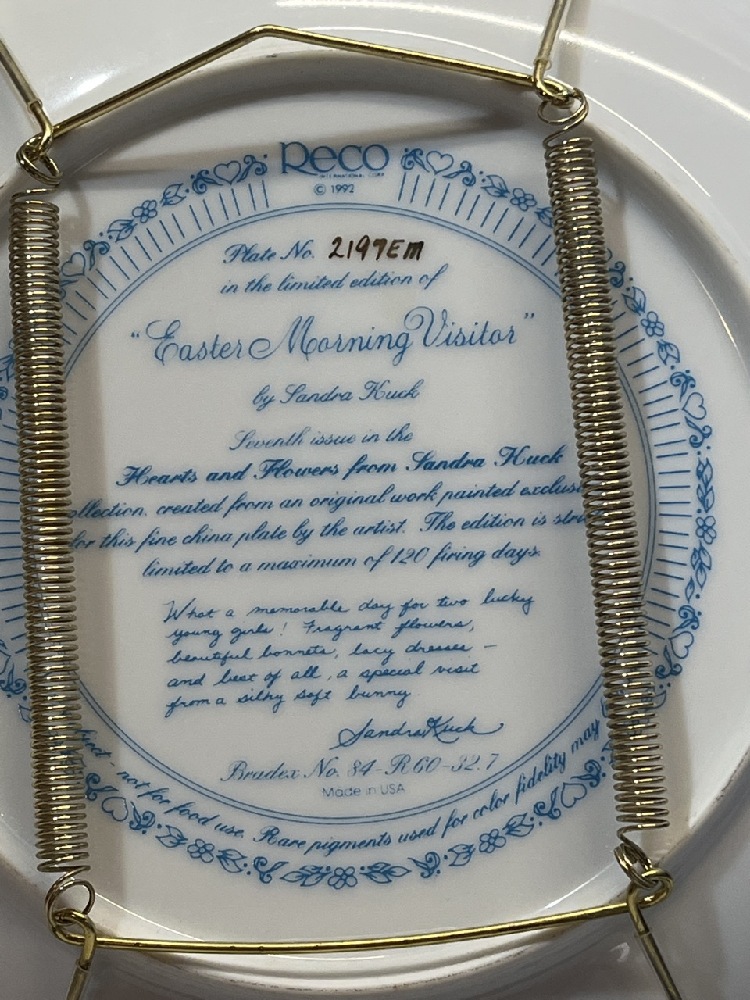 Reco
INTERNATIONAL CORP.
© 1992
Plate No. 2197EM
in the limited edition of
"Easter Morning Visitor"
by Sandra Kuck
Seventh issue in the
Hearts and Flowers from Sandra Kuck
ollection, created from an original work painted exclus
for this fine china plate by the artist. The edition is stri
limited to a maximum of 120 firing days.
What a memorable day for two lucky
young girls! Fragrant flowers,
beautiful bonnets, lacy dresses –
and best of all, a special visit
from a silky soft bunny
Sandra Kuck
Bradex No. 84-R60-32.7
Made in USA
not for food use. Rare pigments used for color fidelity may